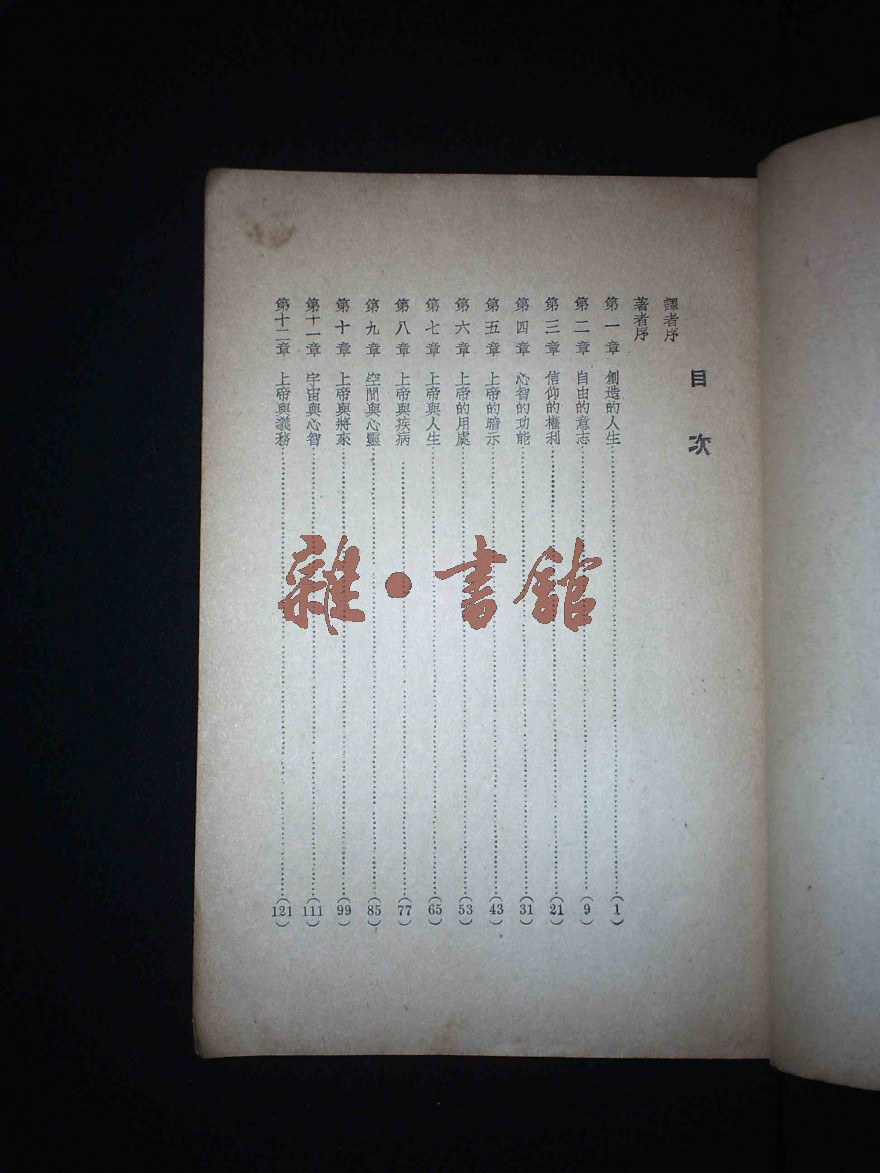 目次
譯者序
著者序
第一章 創造的人生……(1)
第二章 自由的意志……(9)
第三章 信仰的權利……(21)
第四章 心智的功能……(31)
第五章 上帝的暗示……(43)
第六章 上帝的用處……(53)
第七章 上帝與人生……(65)
第八章 上帝與疾病……(77)
第九章 空間與心靈……(85)
第十章 上帝與將來……(99)
第十一章 宇宙與心智……(111)
第十二章 上帝與義務……(121)
雜·書館